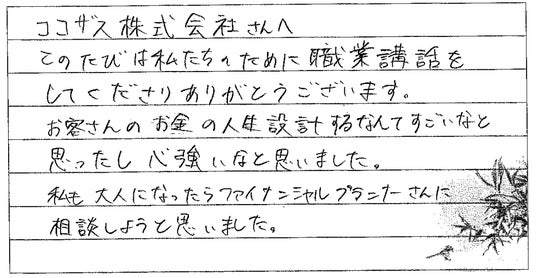 ココザス株式会社さんへ
このたびは私たちのために職業講話を
してくださりありがとうございます。
お客さんのお金の人生設計するなんてすごいなと
思ったし心強いなと思いました。
私も大人になったらファイナンシャルプランナーさんに
相談しようと思いました。